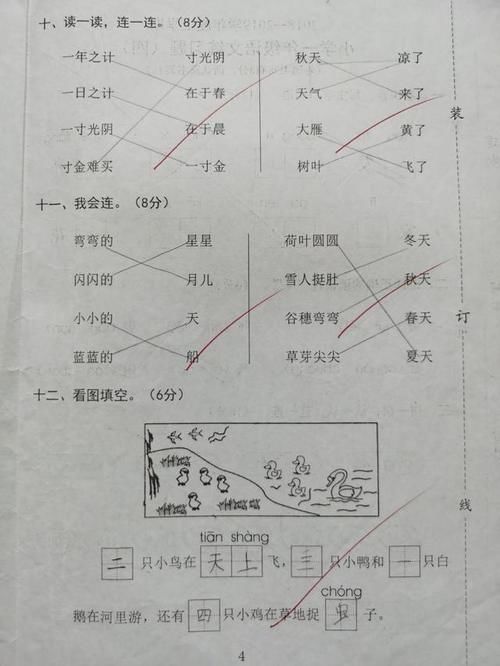 十、读一读，连一连。（8分）
一年之计 寸光阴 秋天 凉了
一日之计 在于春 天气 来了
一寸光阴 在于晨 大雁 黄了
寸金难买 一寸金 树叶 飞了
装
十一、我会连。（8分）
弯弯的 星星 荷叶圆圆 冬天
闪闪的 月儿 雪人挺肚 秋天
小小的 天 谷穗弯弯 春天
订
蓝蓝的 船 草芽尖尖 夏天
十二、看图填空。（6分）
线
tiān shàng
二只小鸟在天上飞，三只小鸭和一只白
chóng
鹅在河里游，还有四只小鸡在草地捉虫子。
4